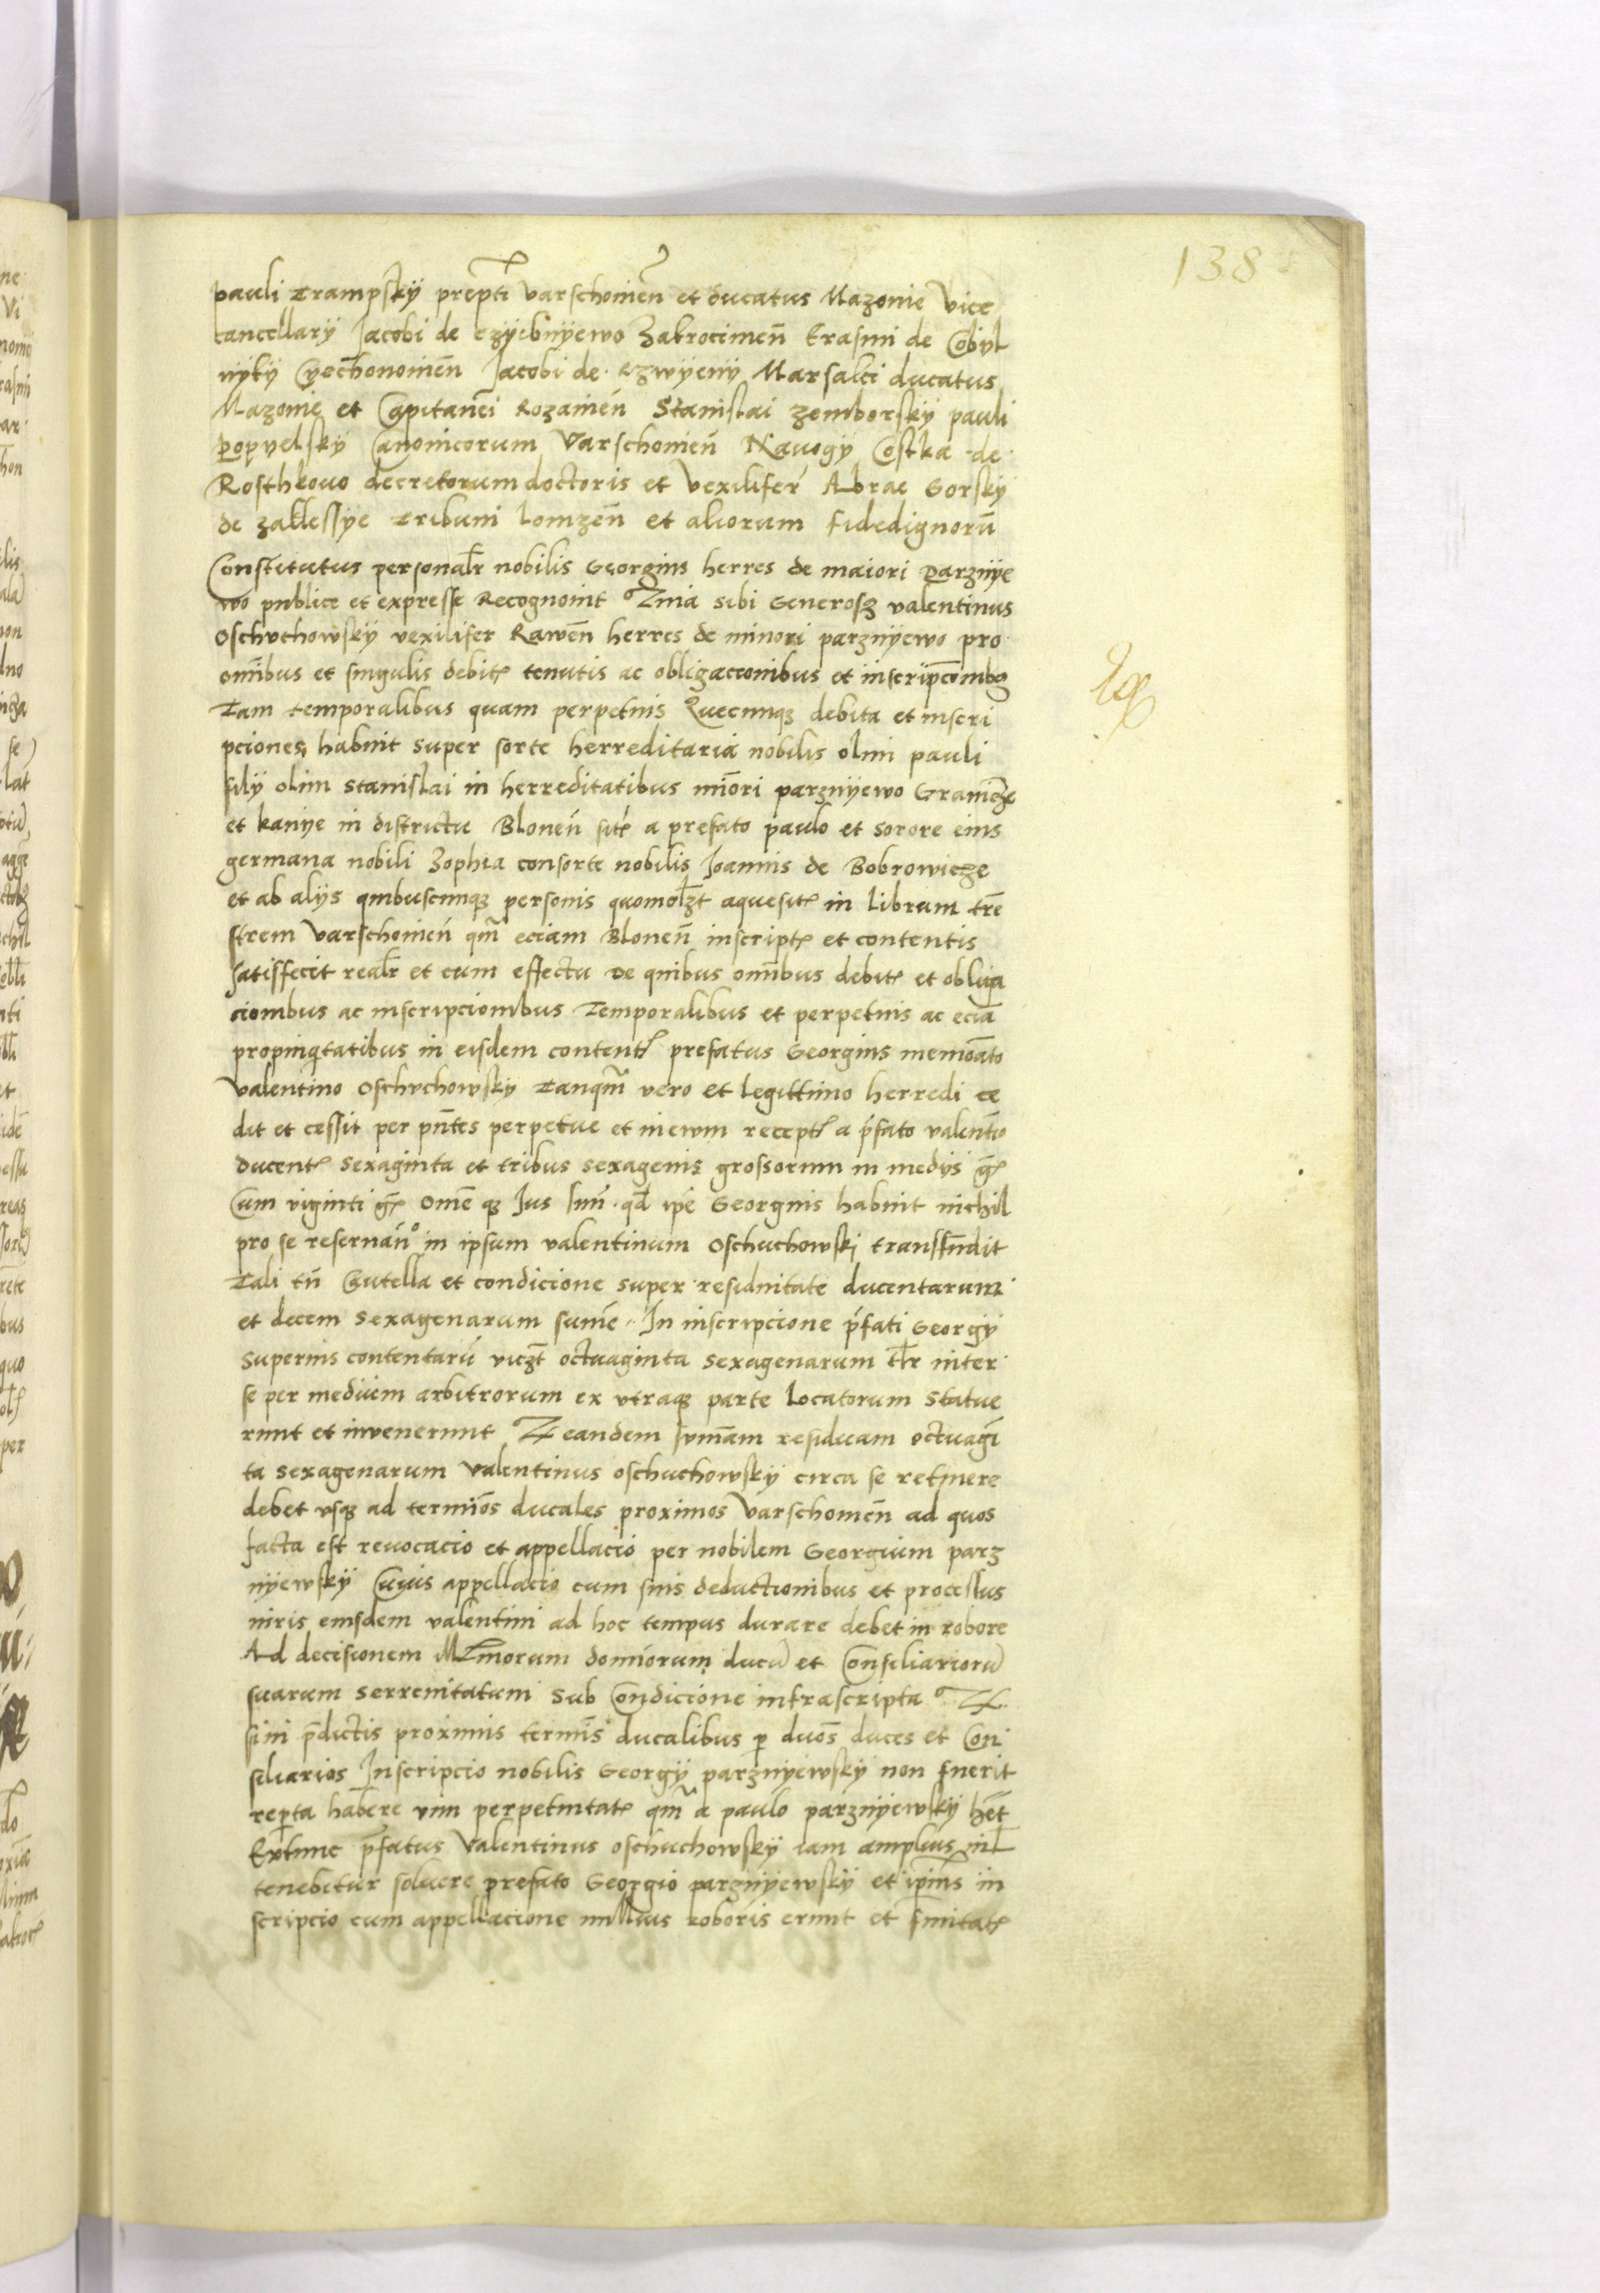 138
pauli Trampsky prepti Varschouien et ducatus Mazouie Vice
cancellarÿ Jacobi de Czyibnyewo Zakrocimen Erasmi de Cobÿl
nyky Cyechonouien Jacobi de Rzwyeny Marsalci ducatus
Mazouie et Capitanei Rozanien Stanislai Zemborsky pauli
Popyelsky Canonicorum Varschouien Nauogy Costka de
Rosthkouo decretorum doctoris et Vexiliferi Abrae Gorsky
de Zalessye Tribuni Lomzen et aliorum fidedignorū
Constitutus personalr nobilis Georgius herres de maiori Parznye
wo publice et expresse Recognouit Quia sibi Generosq valentinus
Oschuchowsky vexilifer Rawen herres de minori parznyewo pro
omibus et singulis debitis tenutis ac obligaccionibus et inscripcoibq
Tam temporalibus quam perpetuis Quecunqz debita et inscri
pciones habuit super sorte herreditaria nobilis olim pauli
filÿ olim Stanislai in herreditatibus minori parznyewo Granicze
et kanye in districtu Blonen sitis a prefato paulo et sorore eius
germana nobili Zophia consorte nobilis Joannis de Bobrowicze
et ab alÿs quibuscunqz personis quomolzt aquesitis in librum tre
strem Varschouien qm eciam Blonen inscriptis et contentis
satisfecit realr et cum effectu De quibus omibus debitis et obliga
cionibus ac inscripcionibus Temporalibus et perpetuis ac ecia
propinqtatibus in eisdem contentis prefatus Georgius memorato
Valentino Oschuchowsky Tanqm vero et legittimo herredi ce
dit et cessit per pntes perpetue et in ewm receptis a pfato valentio
ducentis sexaginta et tribus sexagenis grossorum in medÿs gr
Cum viginti gr Ome qz Jus suu qd ipe Georgius habuit nichil
pro se reseruano in ipsum valentinum Oschuchowski transfudit
Tali tn Cautella et condicione super residuitate ducentarum
et decem sexagenarum sume In inscripcione pfati Georgÿ
superius contentaru viczt octuaginta sexagenarum tlr inter
se per medium arbitrorum ex utraqz parte locatorum statue
runt et invenerunt Qz eandem sumam residuam octuagi
ta sexagenarum Valentinus oschuchowsky circa se retinere
debet vsqz ad terminos ducales proximos Varschouien ad quos
facta est reuocacio et appellacio per nobilem Georgium parz
nyewsky Cuius appellacio cum suis deductionibus et processus
iuris eiusdem valentini ad hoc tempus durare debet in robore
Ad decisionem Illmorum dominorum ducu et Consiliarioru
suarum serrenitatum sub Condicione infrascripta Qz
si in predictis proximis terminis ducalibus p duos duces et Con
siliarios Inscripcio nobilis Georgÿ parznyewsky non fuerit
reperta habere vim perpetuitatis qm a paulo parznyewsky het
Extunc prefatus Valentinus oschuchowsky iam amplius nil
tenebitur soluere prefato Georgio parznyewsky et ipius in
scripcio cum appellacione nullius roboris erunt et firmitatis